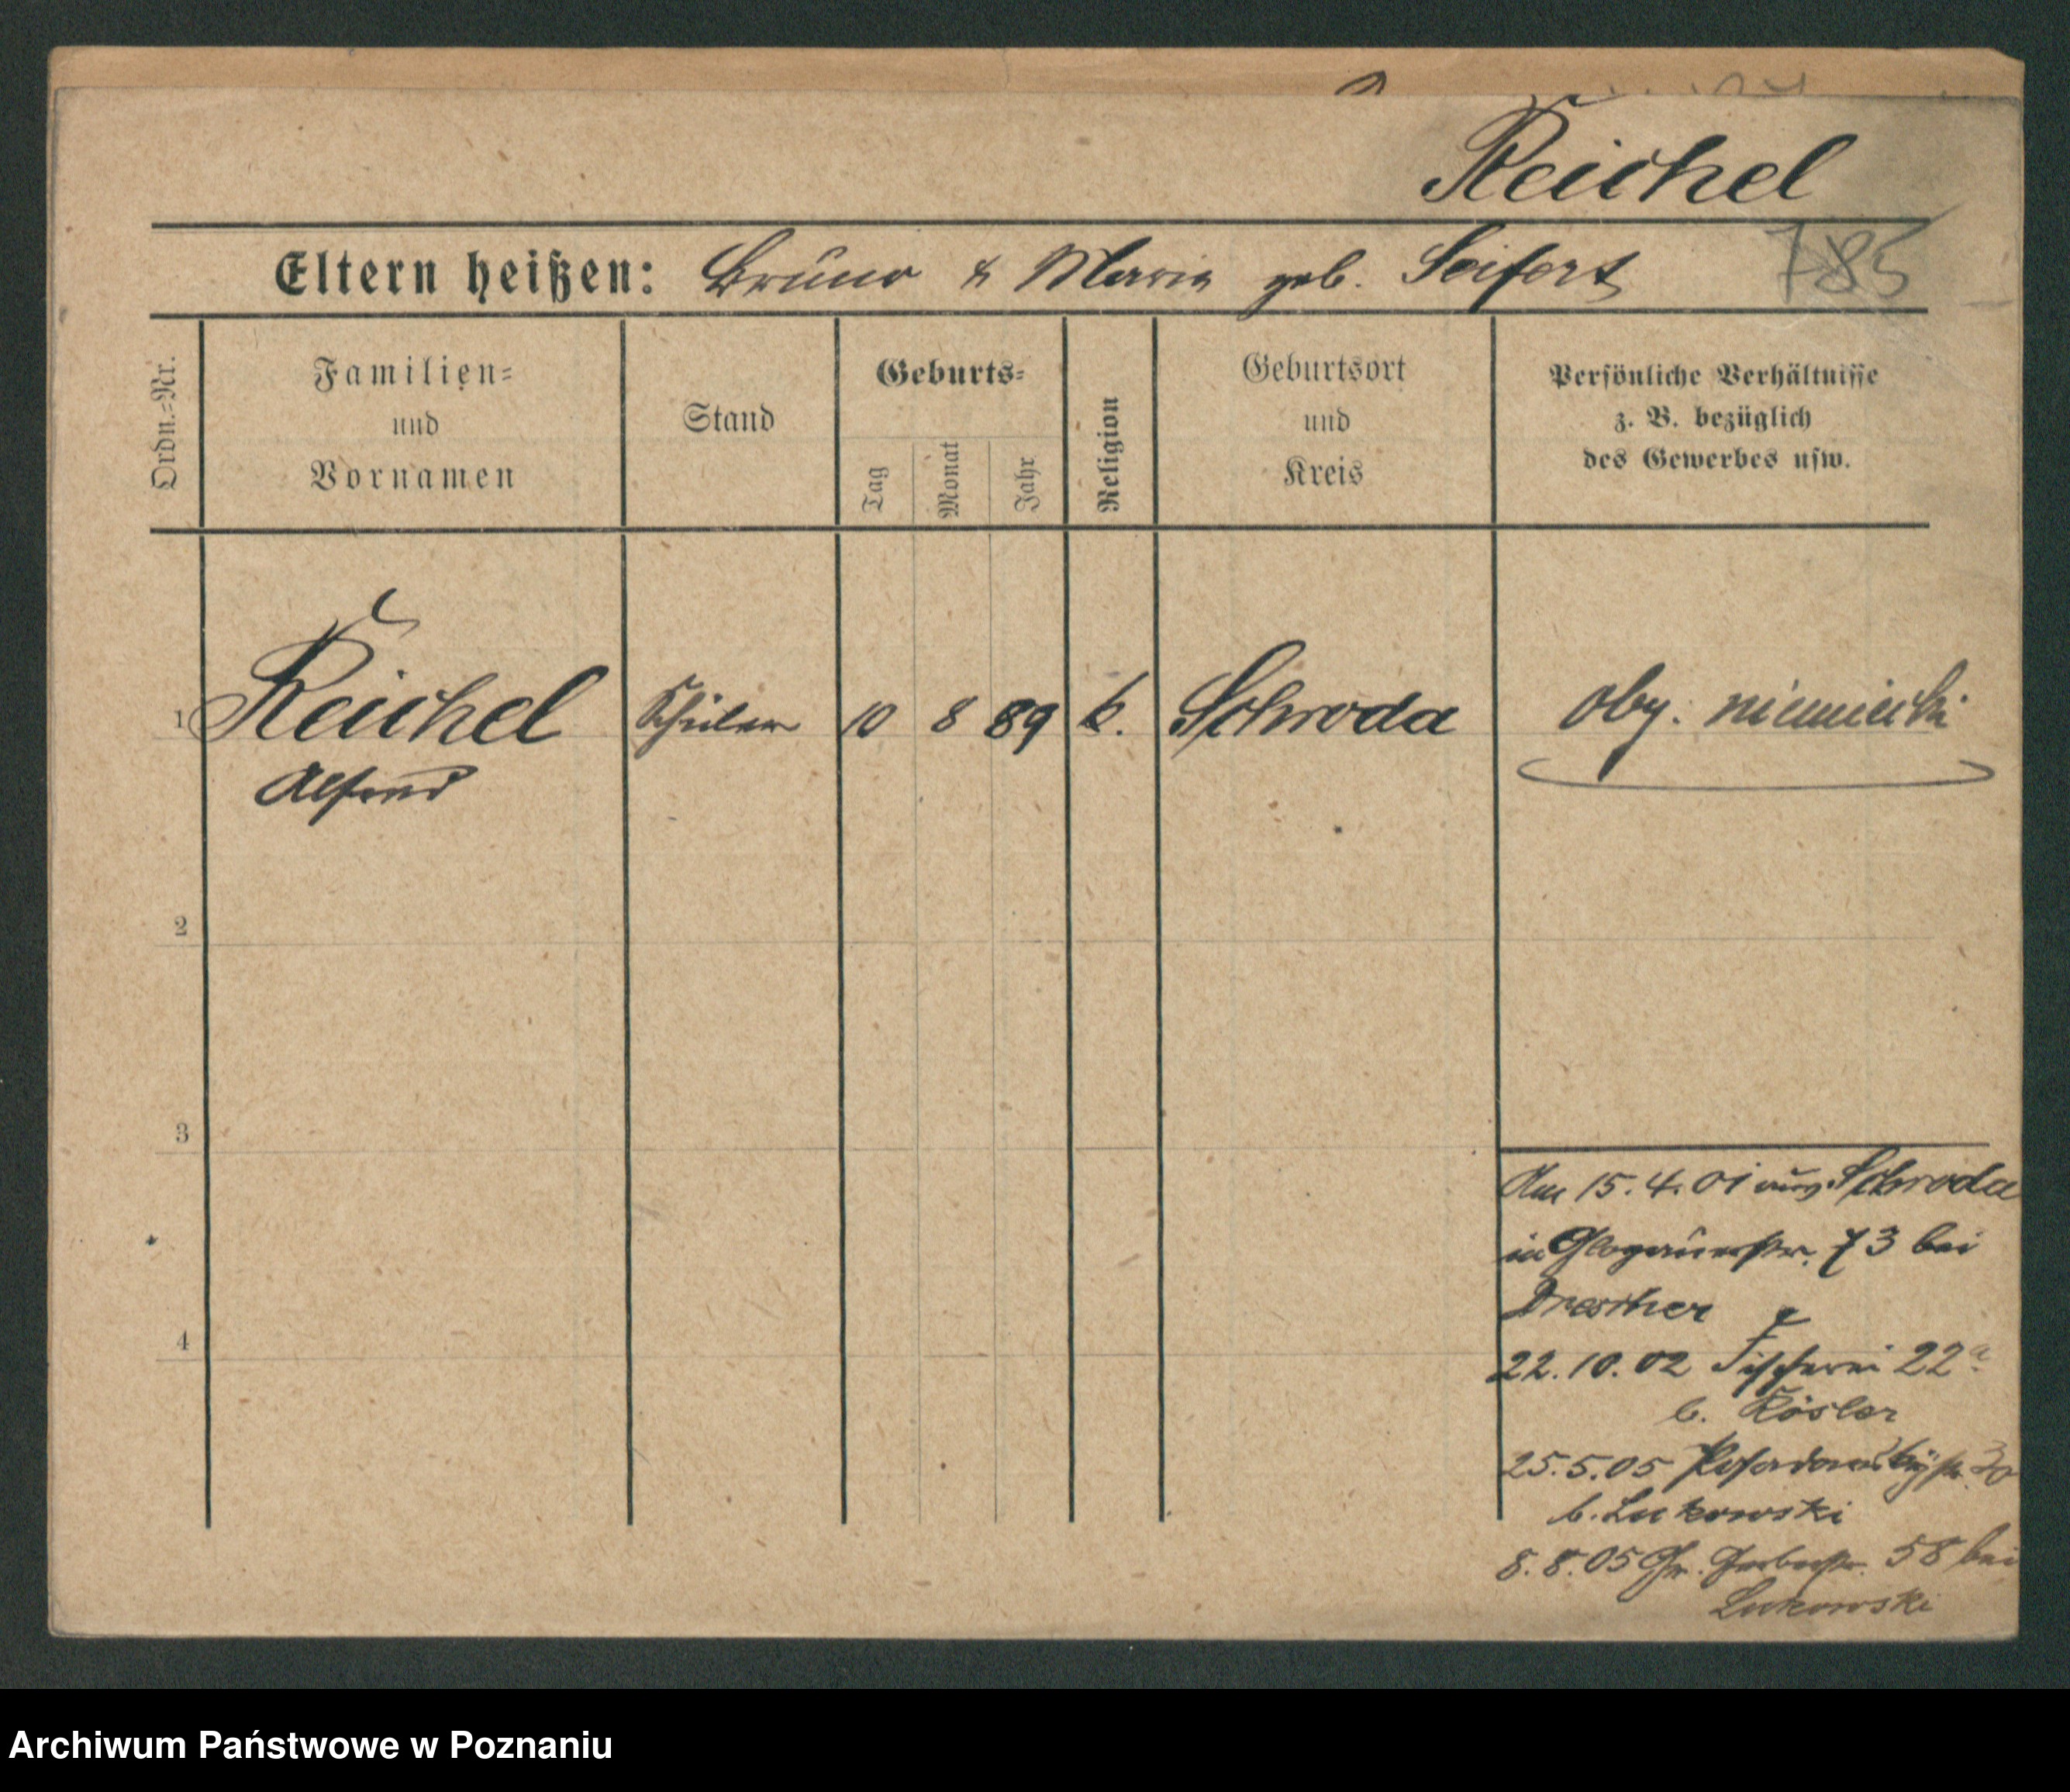 Reichel
Eltern heißen: Bruno & Maria geb. Seifert 785
Ordn.=Nr.
Familien=
und
Vornamen
Stand
Geburts=
Tag
Monat
Jahr
Religion
Geburtsort
und
Kreis
Persönliche Verhältnisse
z. B. bezüglich
des Gewerbes usw.
1 Reichel Schüler 10 8 89 k. Schroda oby. niemiecki
Alfred
2
3
4
Am 15.4.01 aus Schroda
in Glogauerstr. 73 bei
Drescher
22.10.02 Fischerei 22a
b. Rösler
25.5.05 Posadowskystr. 30
b. Lukowski
8.8.05 Gr. Gerberstr. 58 bei
Lukowski
Archiwum Państwowe w Poznaniu